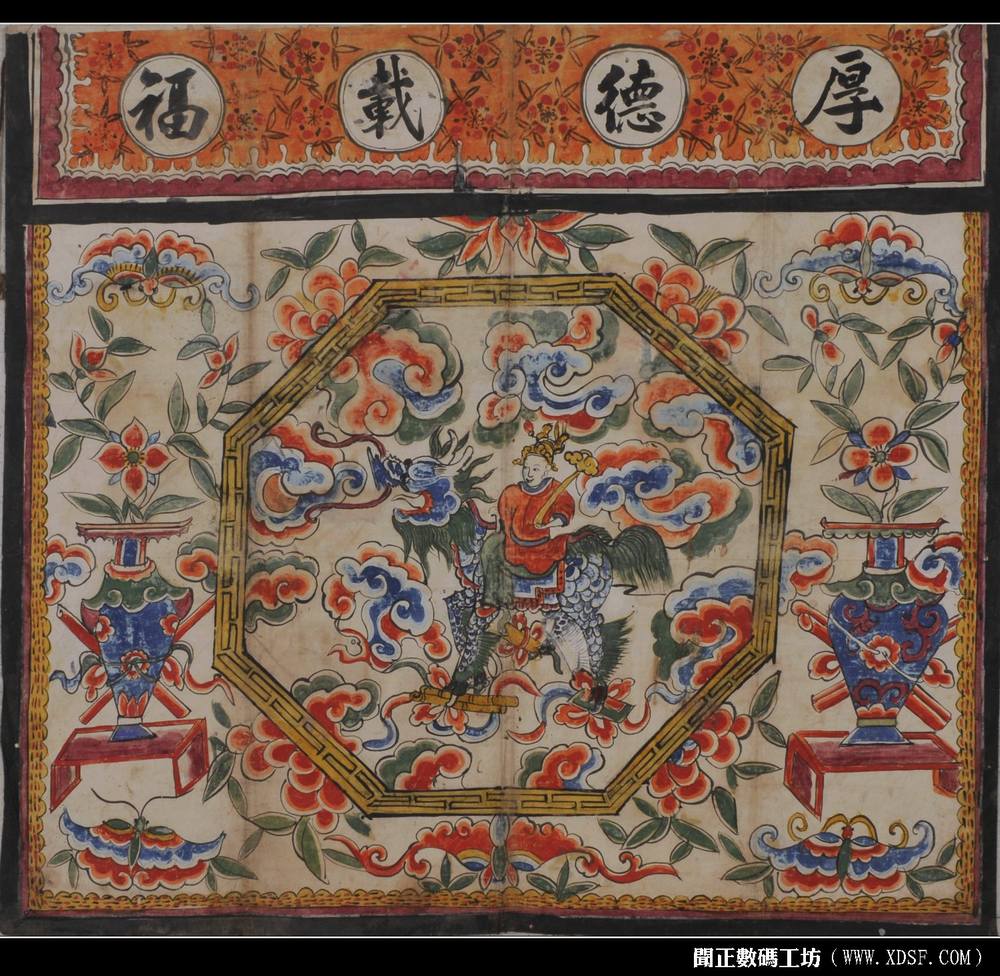 厚德載福
聞正數碼工坊（WWW.XDSF.COM）